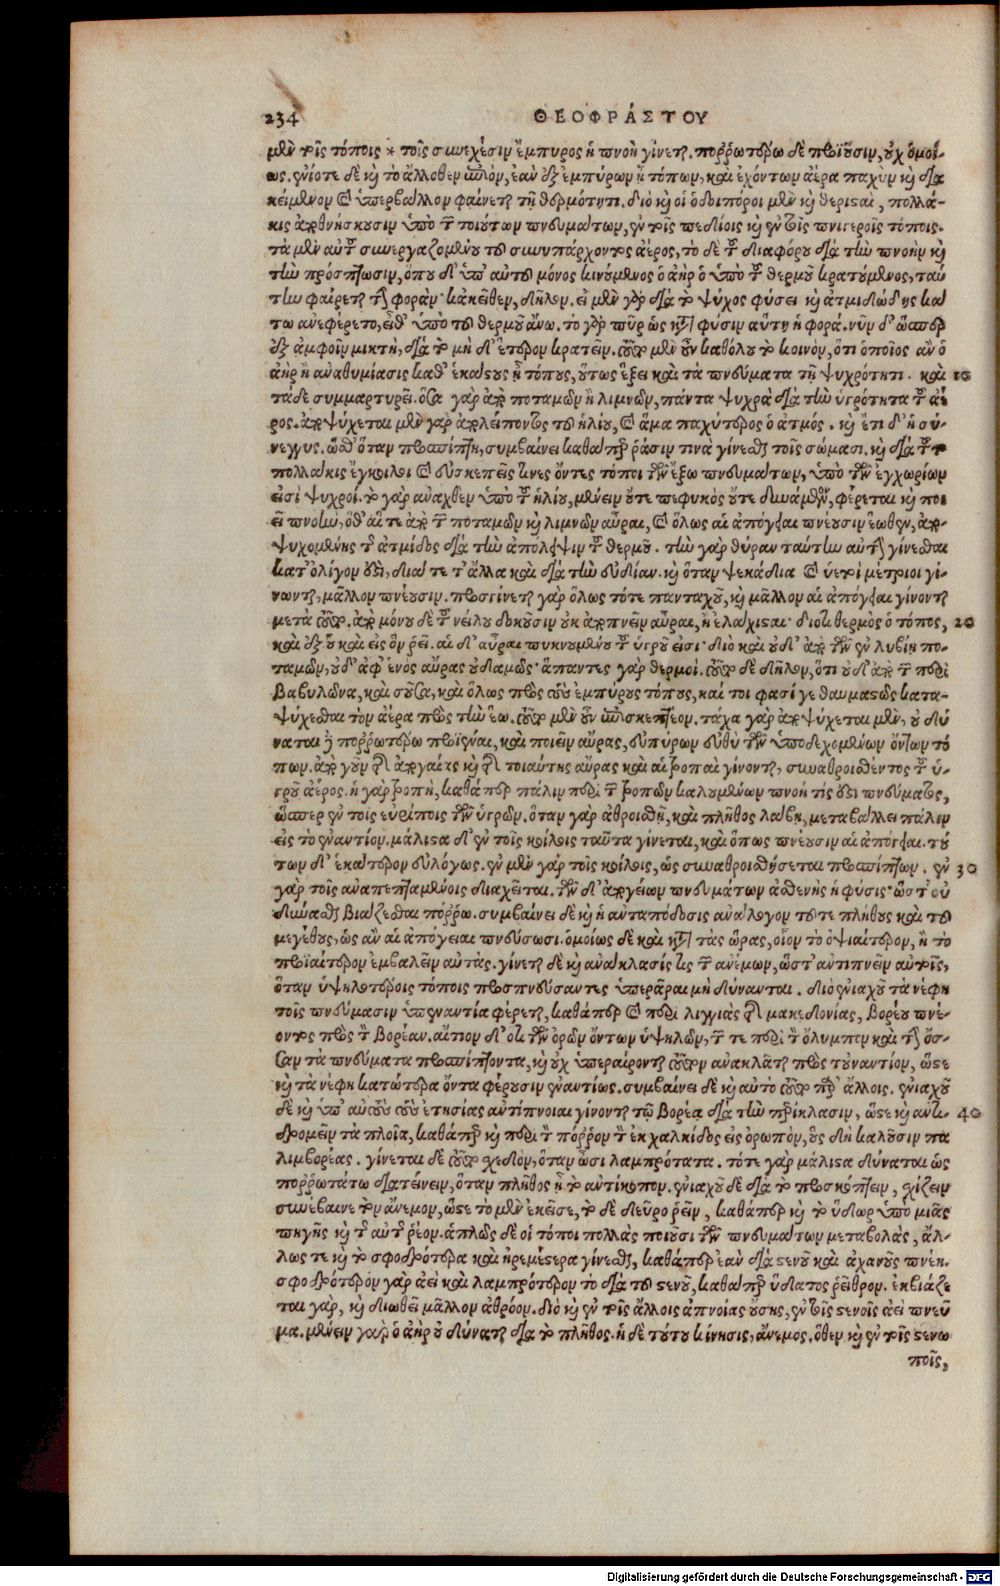 234 ΘΕΟΦΡΆΣΤΟΥ
μὲν τοῖς τόποις * τοῖς συνεχέσιν ἔμπυρος ἡ πνοὴ γίνεται. ποῤῥωτέρω δὲ προϊοῦσιν, οὐχ ὁμοί-
ως. ἐνίοτε δὲ καὶ τὸ ἄλλοθεν ἐπιὸν, ἐὰν ἐξ ἐμπύρων ᾖ τόπων, καὶ ἐχόντων ἀέρα παχὺν καὶ δια
κείμενον καὶ ὑπερβάλλον φαίνεται τῇ θερμότητι. διὸ καὶ οἱ ὁδοιπόροι μὲν καὶ θερισαὶ, πολλά-
κις ἀποθνήσκουσιν ὑπὸ τῶν τοιούτων πνευμάτων, ἐν τοῖς πεδίοις καὶ ἐν τοῖς πνιγεροῖς τόποις.
τὰ μὲν αὐτοῦ συνεργαζομένου τοῦ συνυπάρχοντος ἀέρος, τὸ δὲ τοῦ διαφόρου διὰ τὴν πνοὴν καὶ
τὴν πρόσπτωσιν, ὅπου δι' ὑπ' αὐτοῦ μόνος κινούμενος ὁ ἀὴρ ὁ ὑπὸ τοῦ θερμοῦ κρατούμενος, ταύ
την φαίρεται τὴν φοράν· κἀκεῖθεν, δῆλον. εἰ μὲν γὰρ διὰ τὸ ψύχος φύσει καὶ ἀτμιδώδης κά
τω ἀνεφέρετο, εἶθ' ὑπὸ τοῦ θερμοῦ ἄνω. τὸ γὰρ πῦρ ὡς κατὰ φύσιν αὕτη ἡ φορά. νῦν δ' ὥσπερ
ἐξ ἀμφοῖν μικτὴ, διὰ τὸ μὴ δ' ἕτερον κρατεῖν. τοῦτο μὲν οὖν καθόλου τὸ κοινὸν, ὅτι ὁποῖος ἂν ὁ
ἀὴρ ἢ ἀναθυμίασις καθ' ἑκάσους ᾖ τόπους, οὕτως ἕξει καὶ τὰ πνεύματα τῇ ψυχρότητι. καὶ 10
τάδε συμμαρτυρεῖ. ὅσα γὰρ ἀπὸ ποταμῶν ἢ λιμνῶν, πάντα ψυχρὰ διὰ τὴν ὑγρότητα τοῦ ἀέ
ρος. ἀποψύχεται μὲν γὰρ ἀπολείποντος τοῦ ἡλίου, καὶ ἅμα παχύτερος ὁ ἀτμός. καὶ ἔτι δ' ἡ σύ-
νεγγυς. ὥσθ' ὅταν προσπίπτῃ, συμβαίνει καθάπερ ῥάσιν τινὰ γίνεσθαι τοῖς σώμασι. καὶ διὰ τοῦτο
πολλάκις ἔγκοιλοι καὶ δυσκεπεῖς τινες ὄντες τόποι τῶν ἔξω πνευμάτων, ὑπὸ τῶν ἐγχωρίων
εἰσὶ ψυχροί. τὸ γὰρ ἀναχθὲν ὑπὸ τοῦ ἡλίου, μένειν οὔτε πεφυκὸς οὔτε δυνάμενον, φέρεται καὶ ποι
εῖ πνοὴν, ὅθ' αἵ τε ἀπὸ τῶν ποταμῶν καὶ λιμνῶν αὖραι, καὶ ὅλως αἱ ἀπόγειαι πνέουσιν ἕωθεν, ἀπο-
ψυχομένης τῆς ἀτμίδος διὰ τὴν ἀπόλειψιν τοῦ θερμοῦ. τὴν γὰρ θύραν ταύτην αὐτῆς γίνεσθαι
κατ' ὀλίγον ἐστὶ, διά τε τ' ἄλλα καὶ διὰ τὴν εὐδίαν. καὶ ὅταν ψεκάδια καὶ ὑετοὶ μέτριοι γί-
νωνται, μᾶλλον πνέουσιν. προσγίνεται γὰρ ὅλως τότε πανταχοῦ, καὶ μᾶλλον αἱ ἀπόγειαι γίνονται
μετὰ τοῦτο. ἀπὸ μόνου δὲ τοῦ νείλου δοκοῦσιν οὐκ ἀποπνεῖν αὖραι, ἢ ἐλάχισαι· διότι θερμὸς ὁ τόπος, 20
καὶ ἐξ οὗ καὶ εἰς ὃν ῥεῖ. αἱ δ' αὖραι πυκνουμένου τοῦ ὑγροῦ εἰσι· διὸ καὶ οὐδ' ἀπὸ τῶν ἐν λυβίῃ πο-
ταμῶν, οὐδ' ἀφ' ἑνὸς αὔρας οὐδαμῶς· ἅπαντες γὰρ θερμοί. τοῦτο δὲ δῆλον, ὅτι οὐδ' ἀπὸ τῶν περὶ
Βαβυλῶνα, καὶ σοῦσα, καὶ ὅλως πρὸς τοὺς ἐμπύρους τόπους, καί τοι φασί γε θαυμασῶς κατα-
ψύχεσθαι τὸν ἀέρα πρὸς τὴν ἕω. τοῦτο μὲν οὖν ἐπισκεπτέον. τάχα γὰρ ἀποψύχεται μὲν, οὐ δύ
ναται δὲ ποῤῥωτέρω προϊέναι, καὶ ποιεῖν αὔρας, ἐμπύρων εὐθὺ τῶν ὑποδεχομένων ὄντων τό
πων. ἀπὸ γοῦν τῆς ἀπογαίας καὶ τῆς τοιαύτης αὔρας καὶ αἱ τροπαὶ γίνονται, συναθροισθέντος τοῦ ὑ-
γροῦ ἀέρος. ἡ γὰρ τροπὴ, καθάπερ πάλιν περὶ τῶν τροπῶν καλουμένων πνοή τίς ἐστι πνεύματος,
ὥσπερ ἐν τοῖς εὐρίποις τῶν ὑγρῶν. ὅταν γὰρ ἀθροισθῇ, καὶ πλῆθος λάβῃ, μεταβάλλει πάλιν
εἰς τὸ ἐναντίον. μάλισα δ' ἐν τοῖς κοίλοις ταῦτα γίνεται, καὶ ὅπως πνέουσιν αἱ ἀπόγειαι. τού
των δ' ἑκάτερον εὐλόγως. ἐν μὲν γὰρ τοῖς κοίλοις, ὡς συναθροισθήσεται προσπίπτων. ἐν 30
γὰρ τοῖς ἀναπεπταμένοις διαχεῖται. τῶν δ' ἀπογείων πνευμάτων ἀσθενὴς ἡ φύσις· ὥστ' οὐ
δύναται βιάζεσθαι πόῤῥω. συμβαίνει δὲ καὶ ἡ ἀνταπόδοσις ἀνάλογον τοῦτε πλήθους καὶ τοῦ
μεγέθους, ὡς ἂν αἱ ἀπόγειαι πνεύσωσι. ὁμοίως δὲ καὶ κατὰ τὰς ὥρας, οἷον τὸ ὀψιαίτερον, ἢ τὸ
πρωϊαίτερον ἐμβαλεῖν αὐτάς. γίνεται δὲ καὶ ἀνάκλασίς τις τῶν ἀνέμων, ὥστ' ἀντιπνεῖν αὐτοῖς,
ὅταν ὑψηλοτέροις τόποις προσπνεύσαντες ὑπερᾶραι μὴ δύνανται. διὸ ἐνιαχοῦ τὰ νέφη
τοῖς πνεύμασιν ὑπεναντία φέρεται, καθάπερ καὶ περὶ λιγγιὰς τῆς μακεδονίας, βορέου πνέ-
οντος πρὸς τὸν βορέαν. αἴτιον δ' ὅτι τῶν ὀρῶν ὄντων ὑψηλῶν, τῶν τε περὶ τὸν ὄλυμπον καὶ τὴν ὄσ-
σαν τὰ πνεύματα προσπίπτοντα, καὶ οὐχ ὑπεραίροντα τοῦτον ἀνακλᾶται πρὸς τοὐναντίον, ὥσε
καὶ τὰ νέφη κατώτερα ὄντα φέρουσιν ἐναντίως. συμβαίνει δὲ καὶ αὐτὸ τοῦτο παρ' ἄλλοις. ἐνιαχοῦ
δὲ καὶ ὑπ' αὐτοὺς τοὺς ἐτησίας ἀντίπνοιαι γίνονται τῷ βορέα διὰ τὴν περίκλασιν, ὥσε καὶ ἀντι- 40
δρομεῖν τὰ πλοῖα, καθάπερ καὶ περὶ τὸν πόῤῥον τὸν ἐκ χαλκίδος εἰς ὀρωπὸν, οὓς δὴ καλοῦσιν πα
λιμβορέας. γίνεται δὲ τοῦτο σχεδὸν, ὅταν ὦσι λαμπρότατα. τότε γὰρ μάλισα δύναται ὡς
ποῤῥωτάτω διατείνειν, ὅταν πλῆθος ᾖ τὸ ἀντίκοπον. ἐνιαχοῦ δὲ διὰ τὸ προσκόπτειν, σχίζειν
συνέβαινε τὸν ἄνεμον, ὥσε τὸ μὲν ἐκεῖσε, τὸ δὲ δεῦρο ῥεῖν, καθάπερ καὶ τὸ ὕδωρ ὑπὸ μιᾶς
πηγῆς καὶ τῆς αὐτῆς ῥέον. ἁπλῶς δὲ οἱ τόποι πολλὰς ποιοῦσι τῶν πνευμάτων μεταβολὰς, ἄλ-
λως τε καὶ τὸ σφοδρότερα καὶ ἠρεμέσερα γίνεσθαι, καθάπερ ἐὰν διὰ σενοῦ καὶ ἀχανοῦς πνέῃ.
σφοδρότερον γὰρ ἀεὶ καὶ λαμπρότερον τὸ διὰ τοῦ σενοῦ, καθάπερ ὕδατος ῥεῖθρον. ἐκβιάζε
ται γὰρ, καὶ διωθεῖ μᾶλλον ἀθρόον. διὸ καὶ ἐν τοῖς ἄλλοις ἀπνοίας οὔσης, ἐν τοῖς σενοῖς ἀεὶ πνεῦ
μα. μένειν γὰρ ὁ ἀὴρ οὐ δύναται διὰ τὸ πλῆθος. ἡ δὲ τούτου κίνησις, ἄνεμος. ὅθεν καὶ ἐν τοῖς σενω
ποῖς,
Digitalisierung gefördert durch die Deutsche Forschungsgemeinschaft - DFG